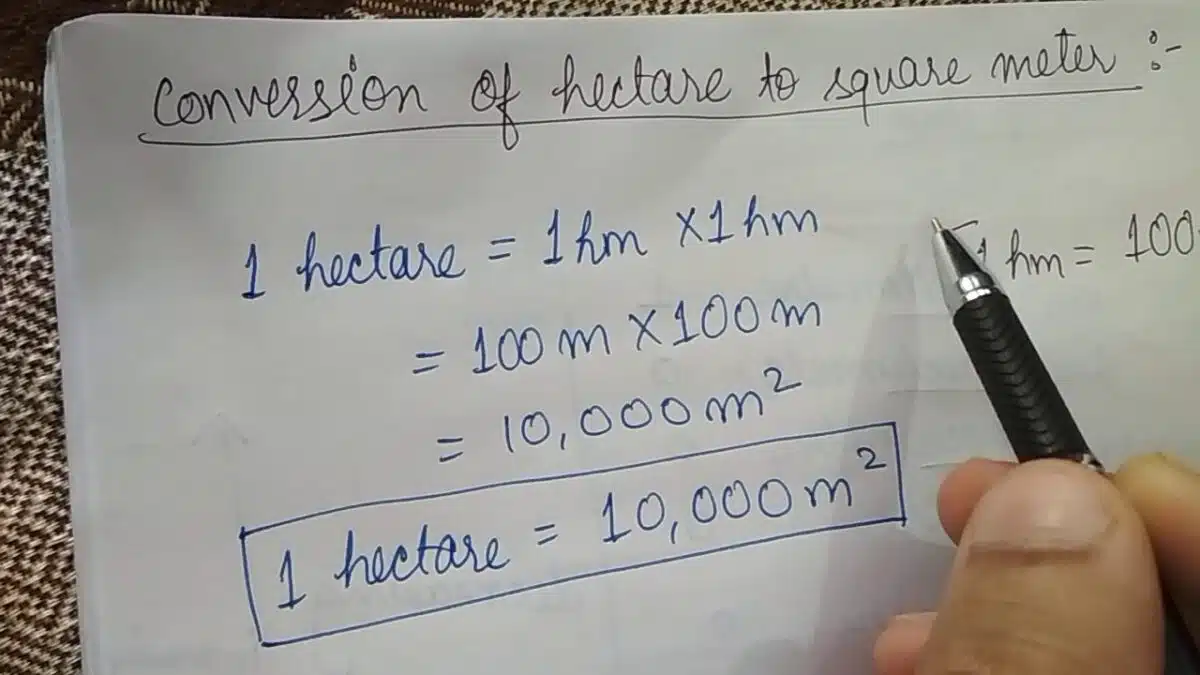 Conversion of hectare to square meter :-
1 hectare = 1 hm × 1 hm
1 hm = 100
= 100 m × 100 m
= 10,000 m²
1 hectare = 10,000 m²